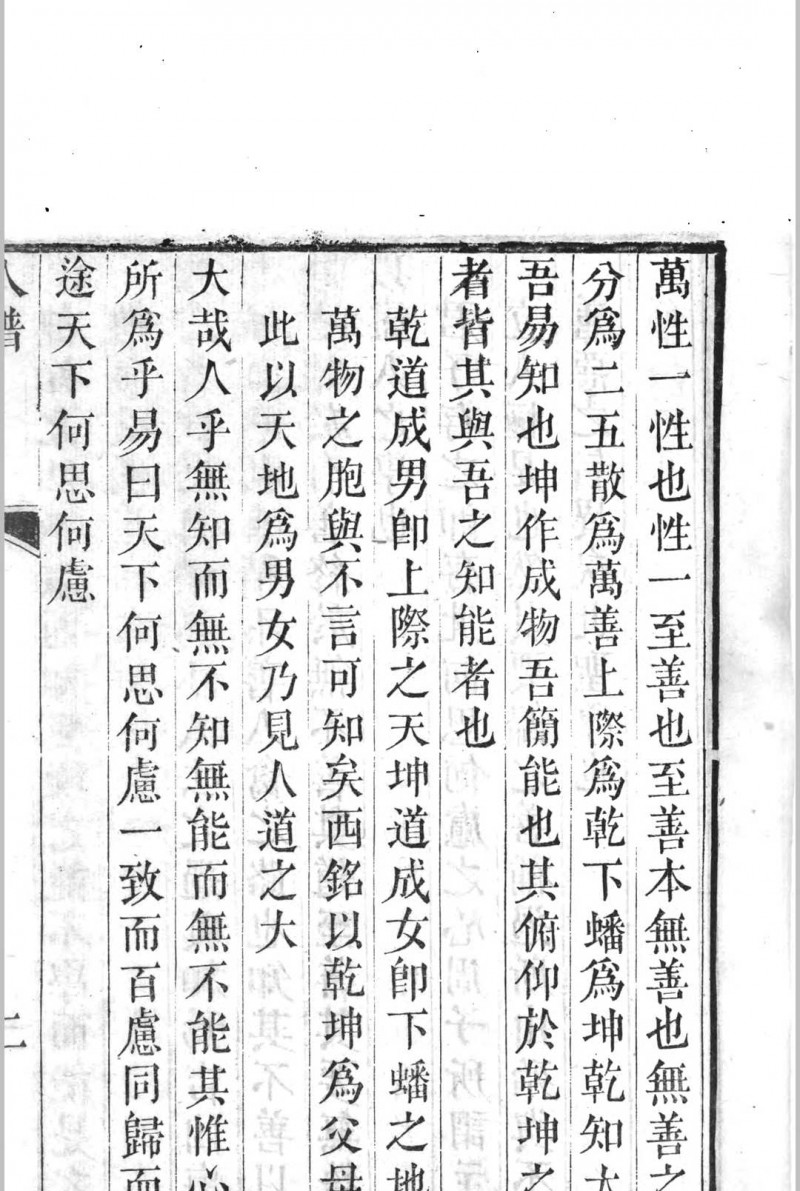 萬性一性也性一至善也至善本無善也無善之
分為二五散為萬善上際為乾下蟠為坤乾知大
吾易知也坤作成物吾簡能也其俯仰於乾坤之
者皆其與吾之知能者也
乾道成男卽上際之天坤道成女卽下蟠之地
萬物之胞與不言可知矣西銘以乾坤為父母
此以天地為男女乃見人道之大
大哉人乎無知而無不知無能而無不能其惟心
所為乎易曰天下何思何慮一致而百慮同歸而
途天下何思何慮
人譜
二